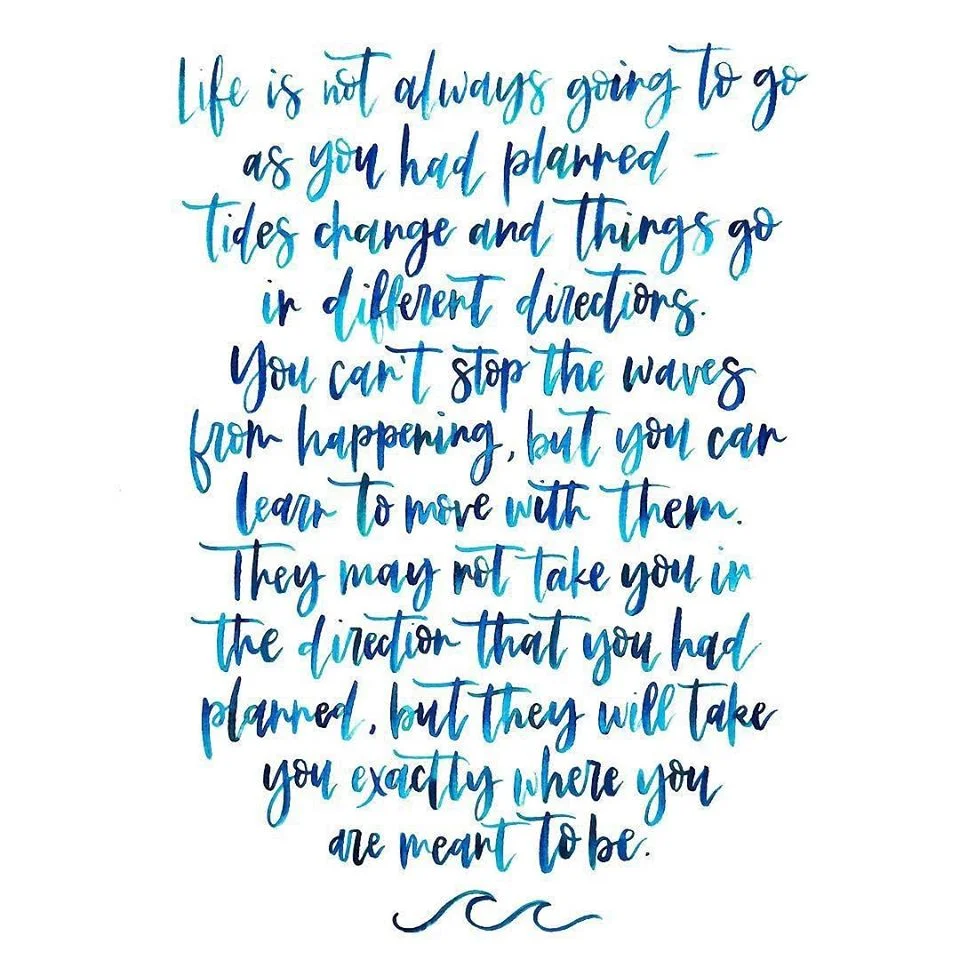 Life is not always going to go
as you had planned -
tides change and things go
in different directions.
You can't stop the waves
from happening, but you can
learn to move with them.
They may not take you in
the direction that you had
planned, but they will take
you exactly where you
are meant to be.